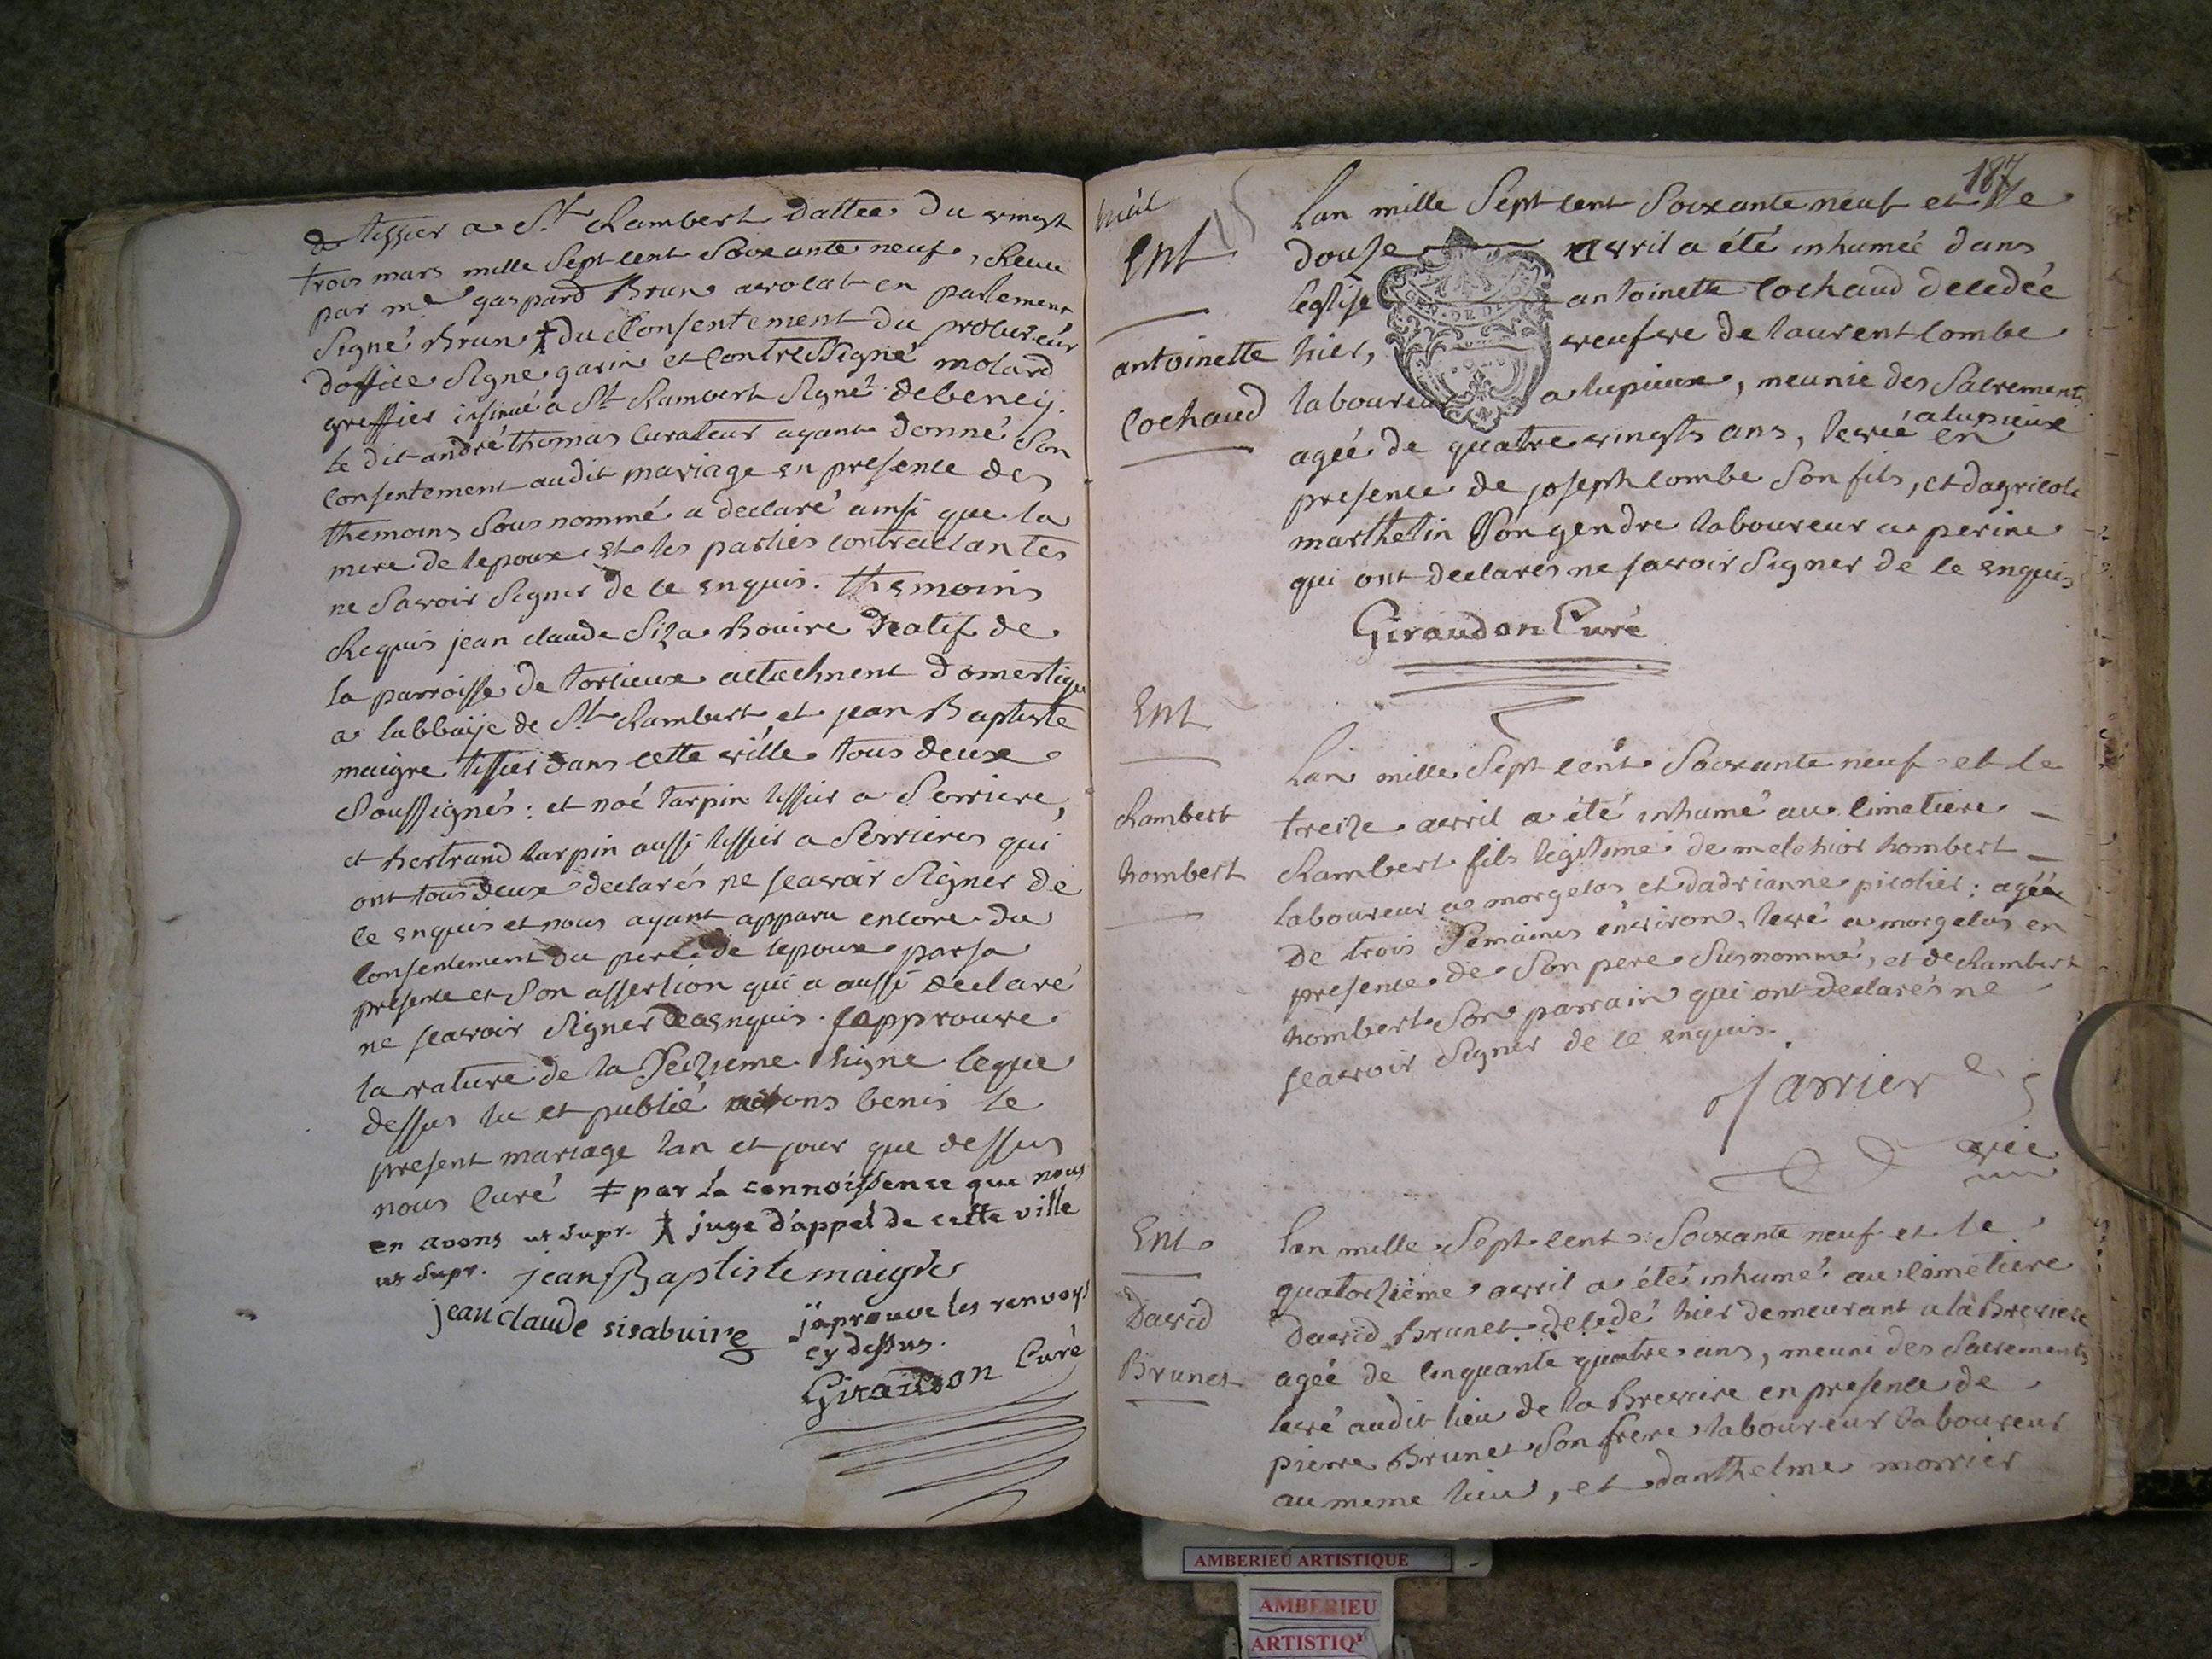 de tissier a St Rambert dattée du vingt
trois mars mille sept cent soixante neuf, Reçue
par me gaspard Brun avocat en parlement
signé Brun ‡ du Consentement du procureur
doffice signé garin et contresigné molard
greffier insinué a St Rambert signé debeney.
le dit andré thomas curateur ayant donné son
consentement audit mariage en presence des
themoins sous nommé a declaré ainsi que la
mere de lepoux et les parties contractantes
ne savoir signer de ce enquis. themoins
Requis jean claude siza Bouire natif de
la parroisse de torcieux domestique
a labbaije de St Rambert et jean Baptiste
maigre tissier dans cette ville tous deux
soussignés : et noé tarpin tissier a serriere,
et bertrand tarpin aussi tissier a serrieres qui
ont tous deux declarés ne seavoir signer de
ce enquis et nous ayant apparu encore du
consentement du pere de lepoux par sa
presence et son assertion qui a aussi declaré
ne seavoir signer de enquis. japprouve
la rature de la ligne ce que
dessus lu et publié avons benis le
present mariage lan et jour que dessus
nous curé ‡ par la connoissence que nous
en avons ut supr. ‡ juge d'appel de cette ville
ut supr. jean Baptiste maigre
jean claude sisabuire j'aprouve les renvoys
cy dessus.
Giraudon Curé
187
Ent
antoinette
Cochaud
Lan mille sept cent soixante neuf et le
douze avril a été inhumée dans
leglise antoinette Cochaud decedée
hier, veufve de laurent Combe
laboureur a lupieux, meunie des sacrements
agée de quatre vingts ans, levée a lupieux en
presence de joseph Combe son fils, et dagricole
marthelin son gendre laboureur a perine
qui ont declarés ne savoir signer de ce enquis
Giraudon Curé
Ent
Rambert
hombert
Lan mille sept cent soixante neuf et le
treize avril a été inhumé au cimetiere
Rambert fils legitime de melchior hombert
laboureur a morgelas et dadrianne picolier : agée
de trois semaines environ, levé a morgelas en
presence de son pere susnommé, et de Rambert
hombert son parrain qui ont declarés ne
seavoir signer de ce enquis.
Sarrier
vic
Ent
David
Brunet
Lan mille sept cent soixante neuf et le
quatorzieme avril a été inhumé au cimetiere
David Brunet decedé hier demeurant a la Breviere
agée de cinquante quatre ans, meuni des sacrements
levé audit lieu de la Brevire en presence de
pierre Brunet son frere laboureur laboureur
au meme lieu, et danthelme morrier
AMBERIEU ARTISTIQUE
AMBERIEU
ARTISTIQ